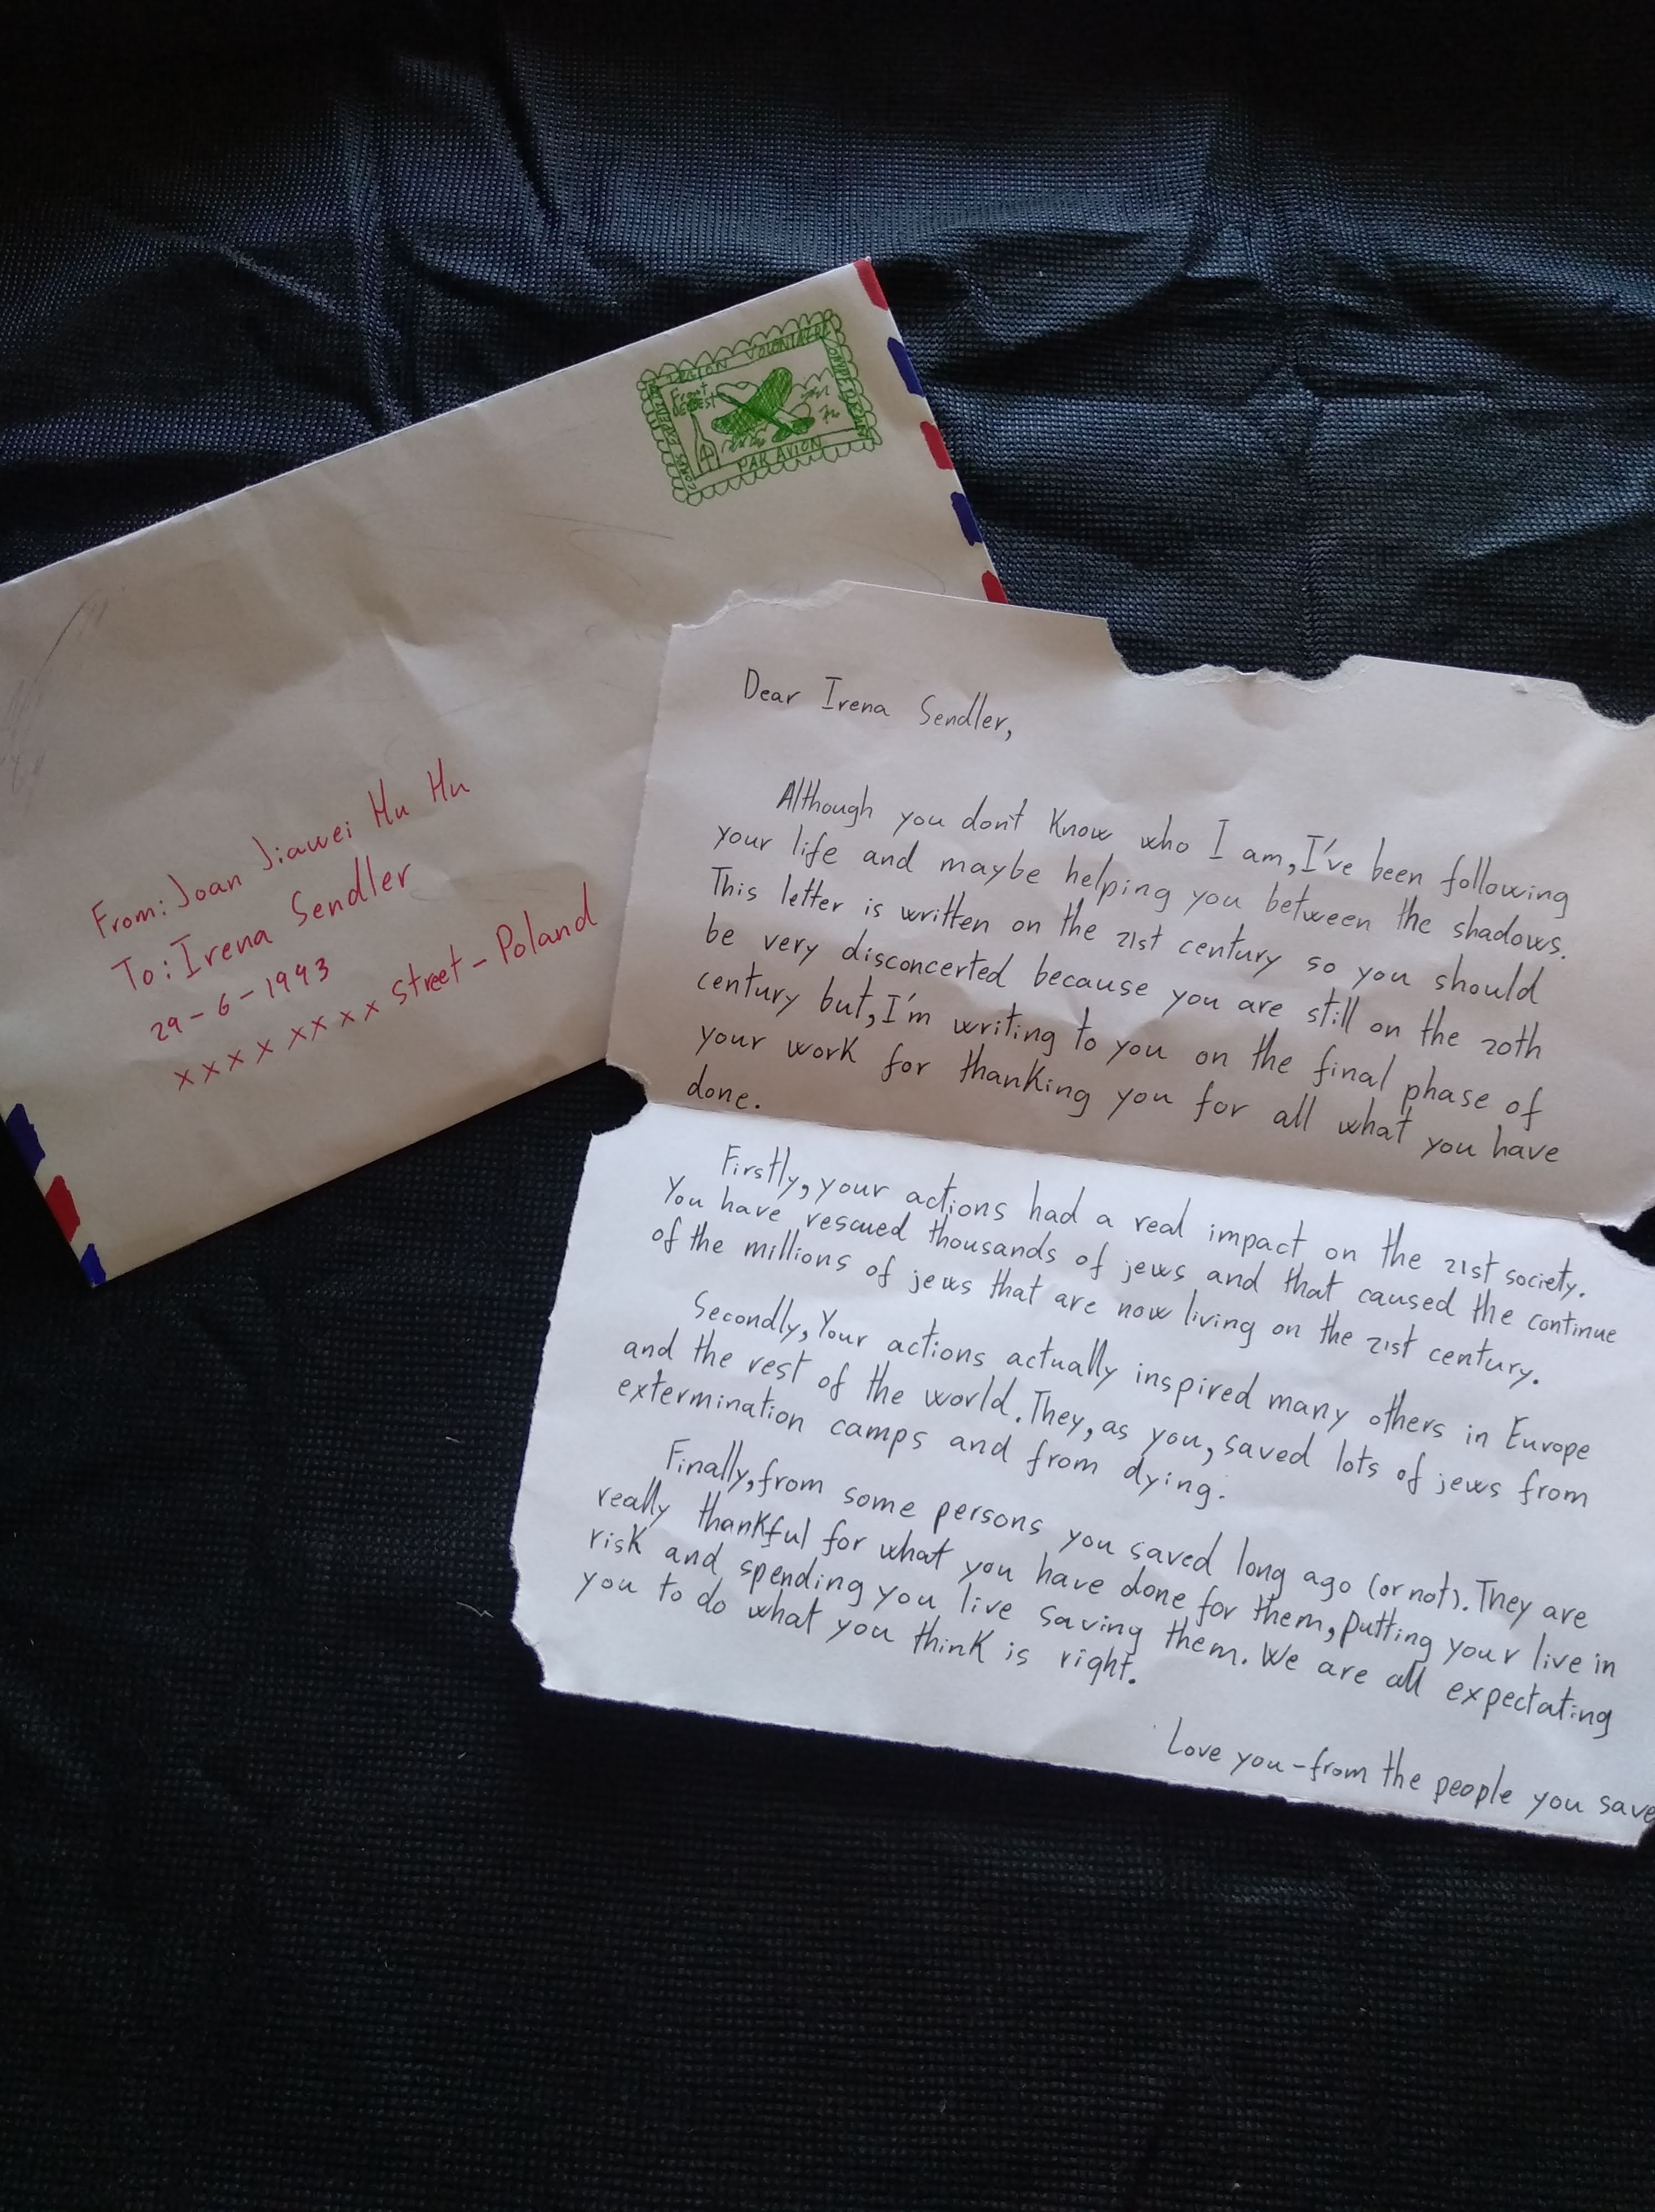 VOLONTAIRE
Front
DE L'EST
PAR AVION
From: Joan Jiawei Hu Hu
To: Irena Sendler
29-6-1943
xxxx xxxx street - Poland
Dear Irena Sendler,
Although you don't know who I am, I've been following
your life and maybe helping you between the shadows.
This letter is written on the 21st century so you should
be very disconcerted because you are still on the 20th
century but, I'm writing to you on the final phase of
your work for thanking you for all what you have
done.
Firstly, your actions had a real impact on the 21st society.
You have rescued thousands of jews and that caused the continue
of the millions of jews that are now living on the 21st century.
Secondly, Your actions actually inspired many others in Europe
and the rest of the world. They, as you, saved lots of jews from
extermination camps and from dying.
Finally, from some persons you saved long ago (or not). They are
really thankful for what you have done for them, putting your live in
risk and spending you live saving them. We are all expectating
you to do what you think is right.
Love you - from the people you save